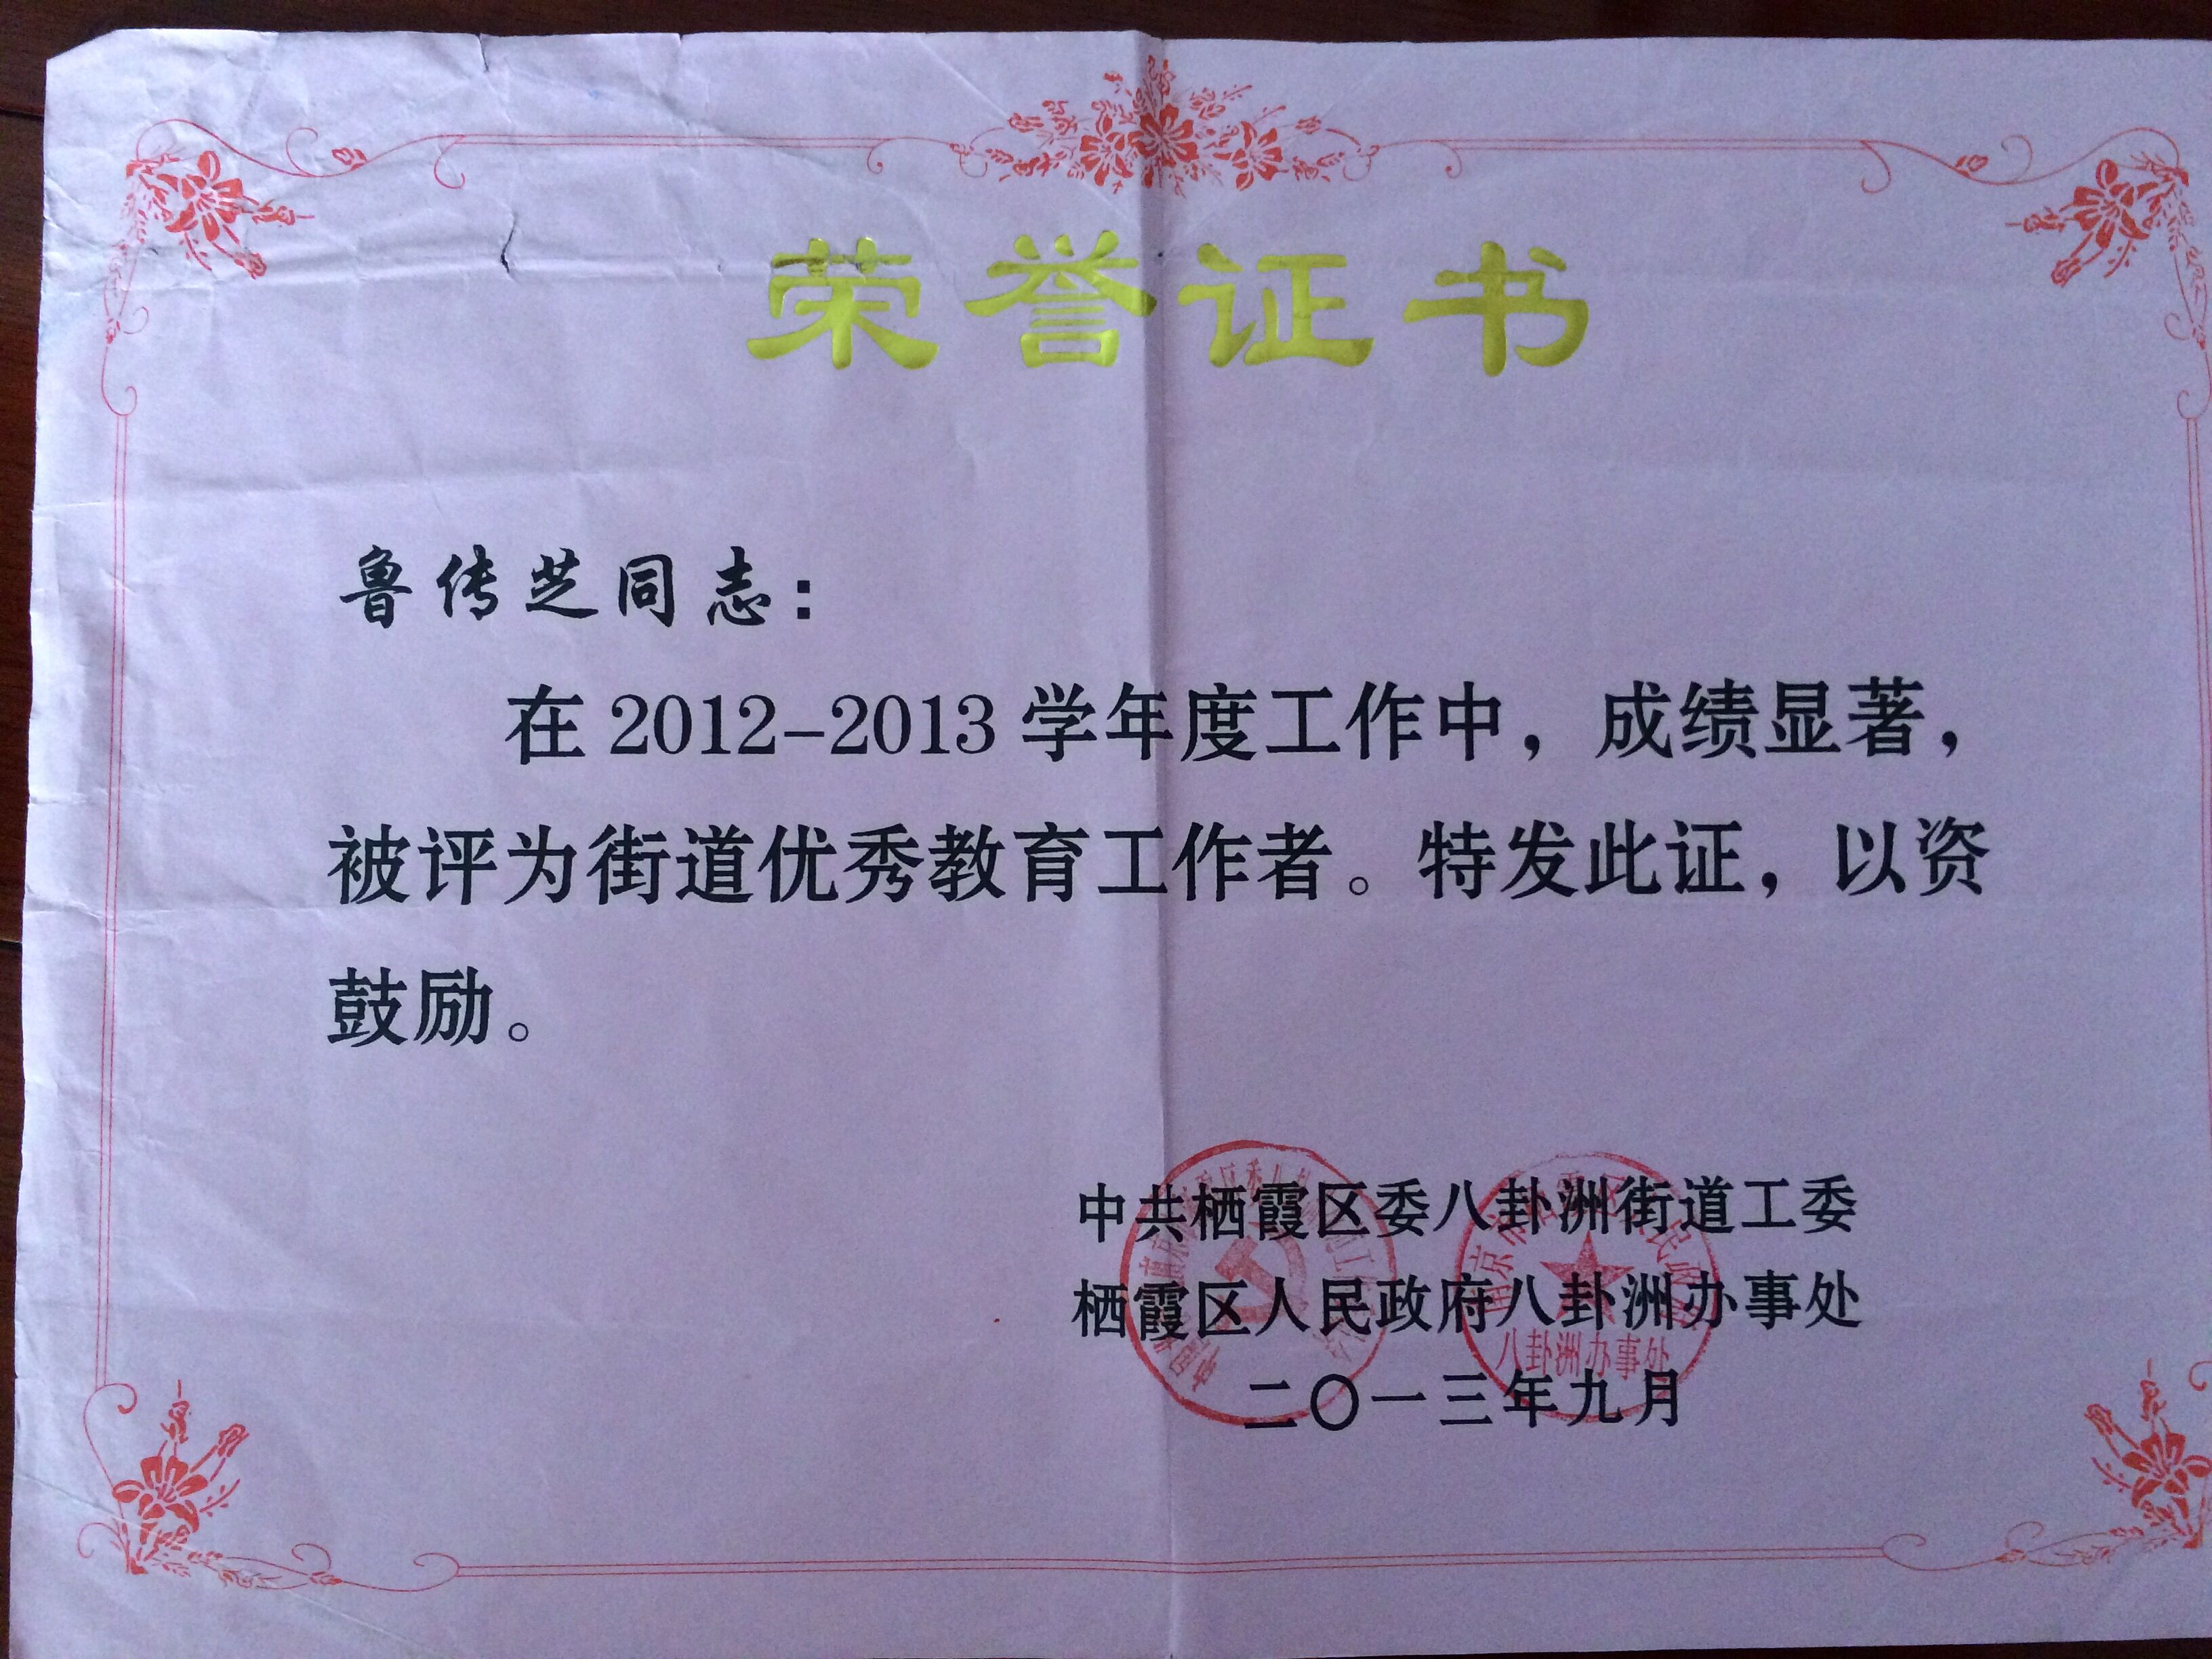 荣誉证书
鲁传芝同志：
在2012-2013学年度工作中，成绩显著，
被评为街道优秀教育工作者。特发此证，以资
鼓励。
中共栖霞区委八卦洲街道工委
栖霞区人民政府八卦洲办事处
八卦洲办事处
二〇一三年九月